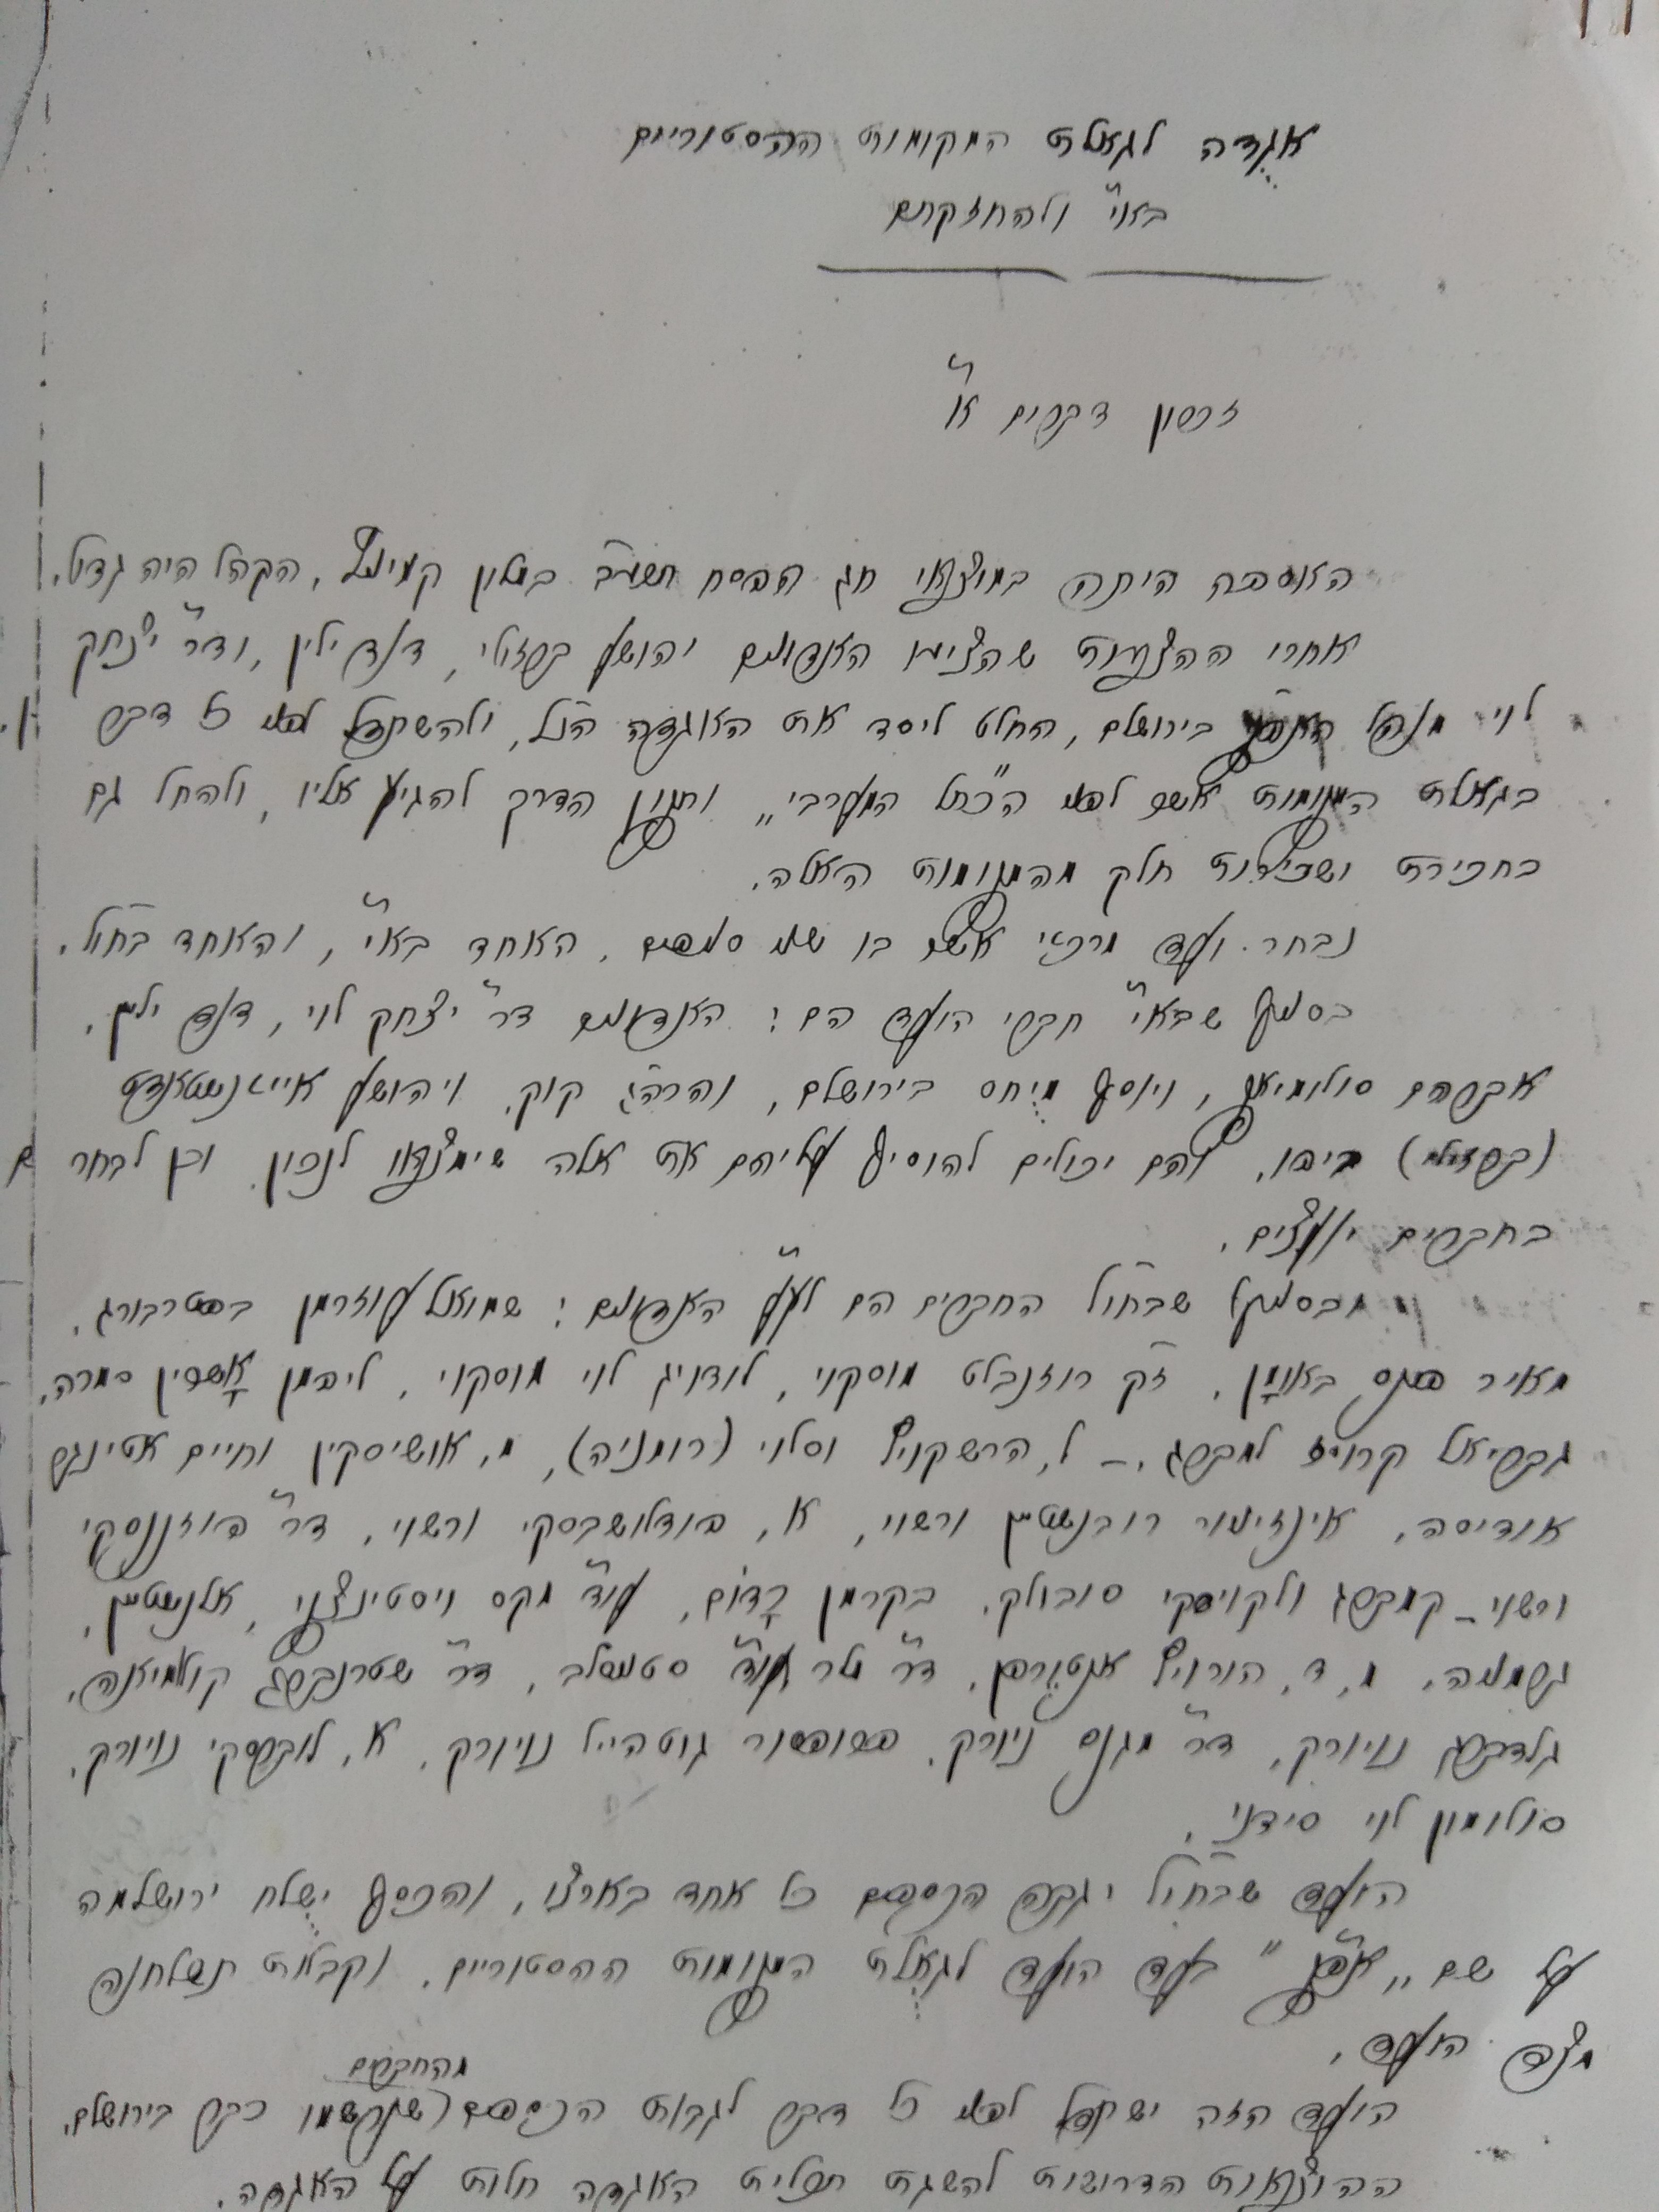 אגֻדה לגאלת המקומות ההסטוריים
באי״ ולהחזקתם
זכרון דברים א״
האוספה היתה במוצאי חג הפסח תשע״ב במלון קמיניץ, הקהל היה גדול.
אחרי ההצעות שהציעו האדונים יהושע ברזולי, דוד ילין, ודר״ יצחק
לוי מנהל האפ״ק בירושלם, החלט ליסד את האוגדה הנ״ל, ולהשתדל לפני כל דבר
בגאלת המקומות אשר לפני ה״כתל המערבי״ ותקון הדרך להגיע אליו, ולהחל גם
בחכירת ושכירות חלק מהמקומות האלה.
נבחר ועד מרכזי אשר בו שני סניפים, האחד באי״, והאחד בחו״ל.
בסניף שבאי״ חברי הועד הם: האדונים דר״ יצחק לוי, דוד ילין,
אברהם סולומיאק, ויוסף מיֻחס בירושלם, והרה״ג קוק, ויהושע אייזנשטאדט
(ברזילי) ביפו. והם יכולים להוסיף עליהם את אלה שימצאו לנכון. וכן לבחר
בחברים יועצים.
מבסניף שבחו״ל החברים הם לע״ע האדונים: שמואל עוזרמן בפטרבורג,
מאיר פינס באוומָן, ז״ק רוזנבלט מוסקוי, לודויג לוי מוסקוי, ליפמן אָשרין סמרה,
גבריאל קרויז למברג, – ל, הרשקוויץ וסלוי (רומניה), מ, אושיסקין וחיים אטינגר
אודיסה, אינזינור רובנשטין ורשוי, א, פודלושבסקי ורשוי, דר״ בוזננסקי
ורשוי – קמברג ולקויסקי סובולק, בקרמן רָדוֹם, עוד״ מקס ויסטינצני, אלנשטין,
גרמניה, מ, ד, הורוויץ אנטורפן, דר״ מלר עוד״ סטניסלב, דר״ שטרנברג קולומיאנה,
גלדברג נויורק, דר״ מגנס ניורק, פרופסור גוטהייל נויורק, א, לוברסקי נויורק,
סולומון לוי סידני,
הועד שבחו״ל יגבה הכספים כל אחד בארצו, והכסף יֻשלח ירושלמה
על שם „אפ״ק״ בעד הועד לגאֻלת המקומות ההסטוריים, וקבלות תשלחנה
מצד הועד,
מהחברים
הועד הזה ישתדל לפני כל דבר לגבות הכספים (שנרשמו כבר בירושלם,
ההוצאות הדרושות להשגת תכלית האגדה חלות על האגדה.